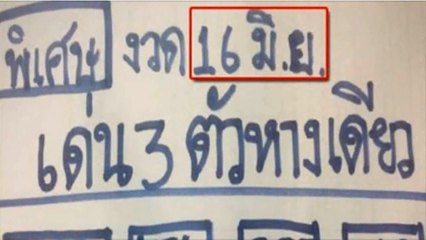 พิเศษ งวด 16 มิ.ย.
เด่น 3 ตัวหางเดียว